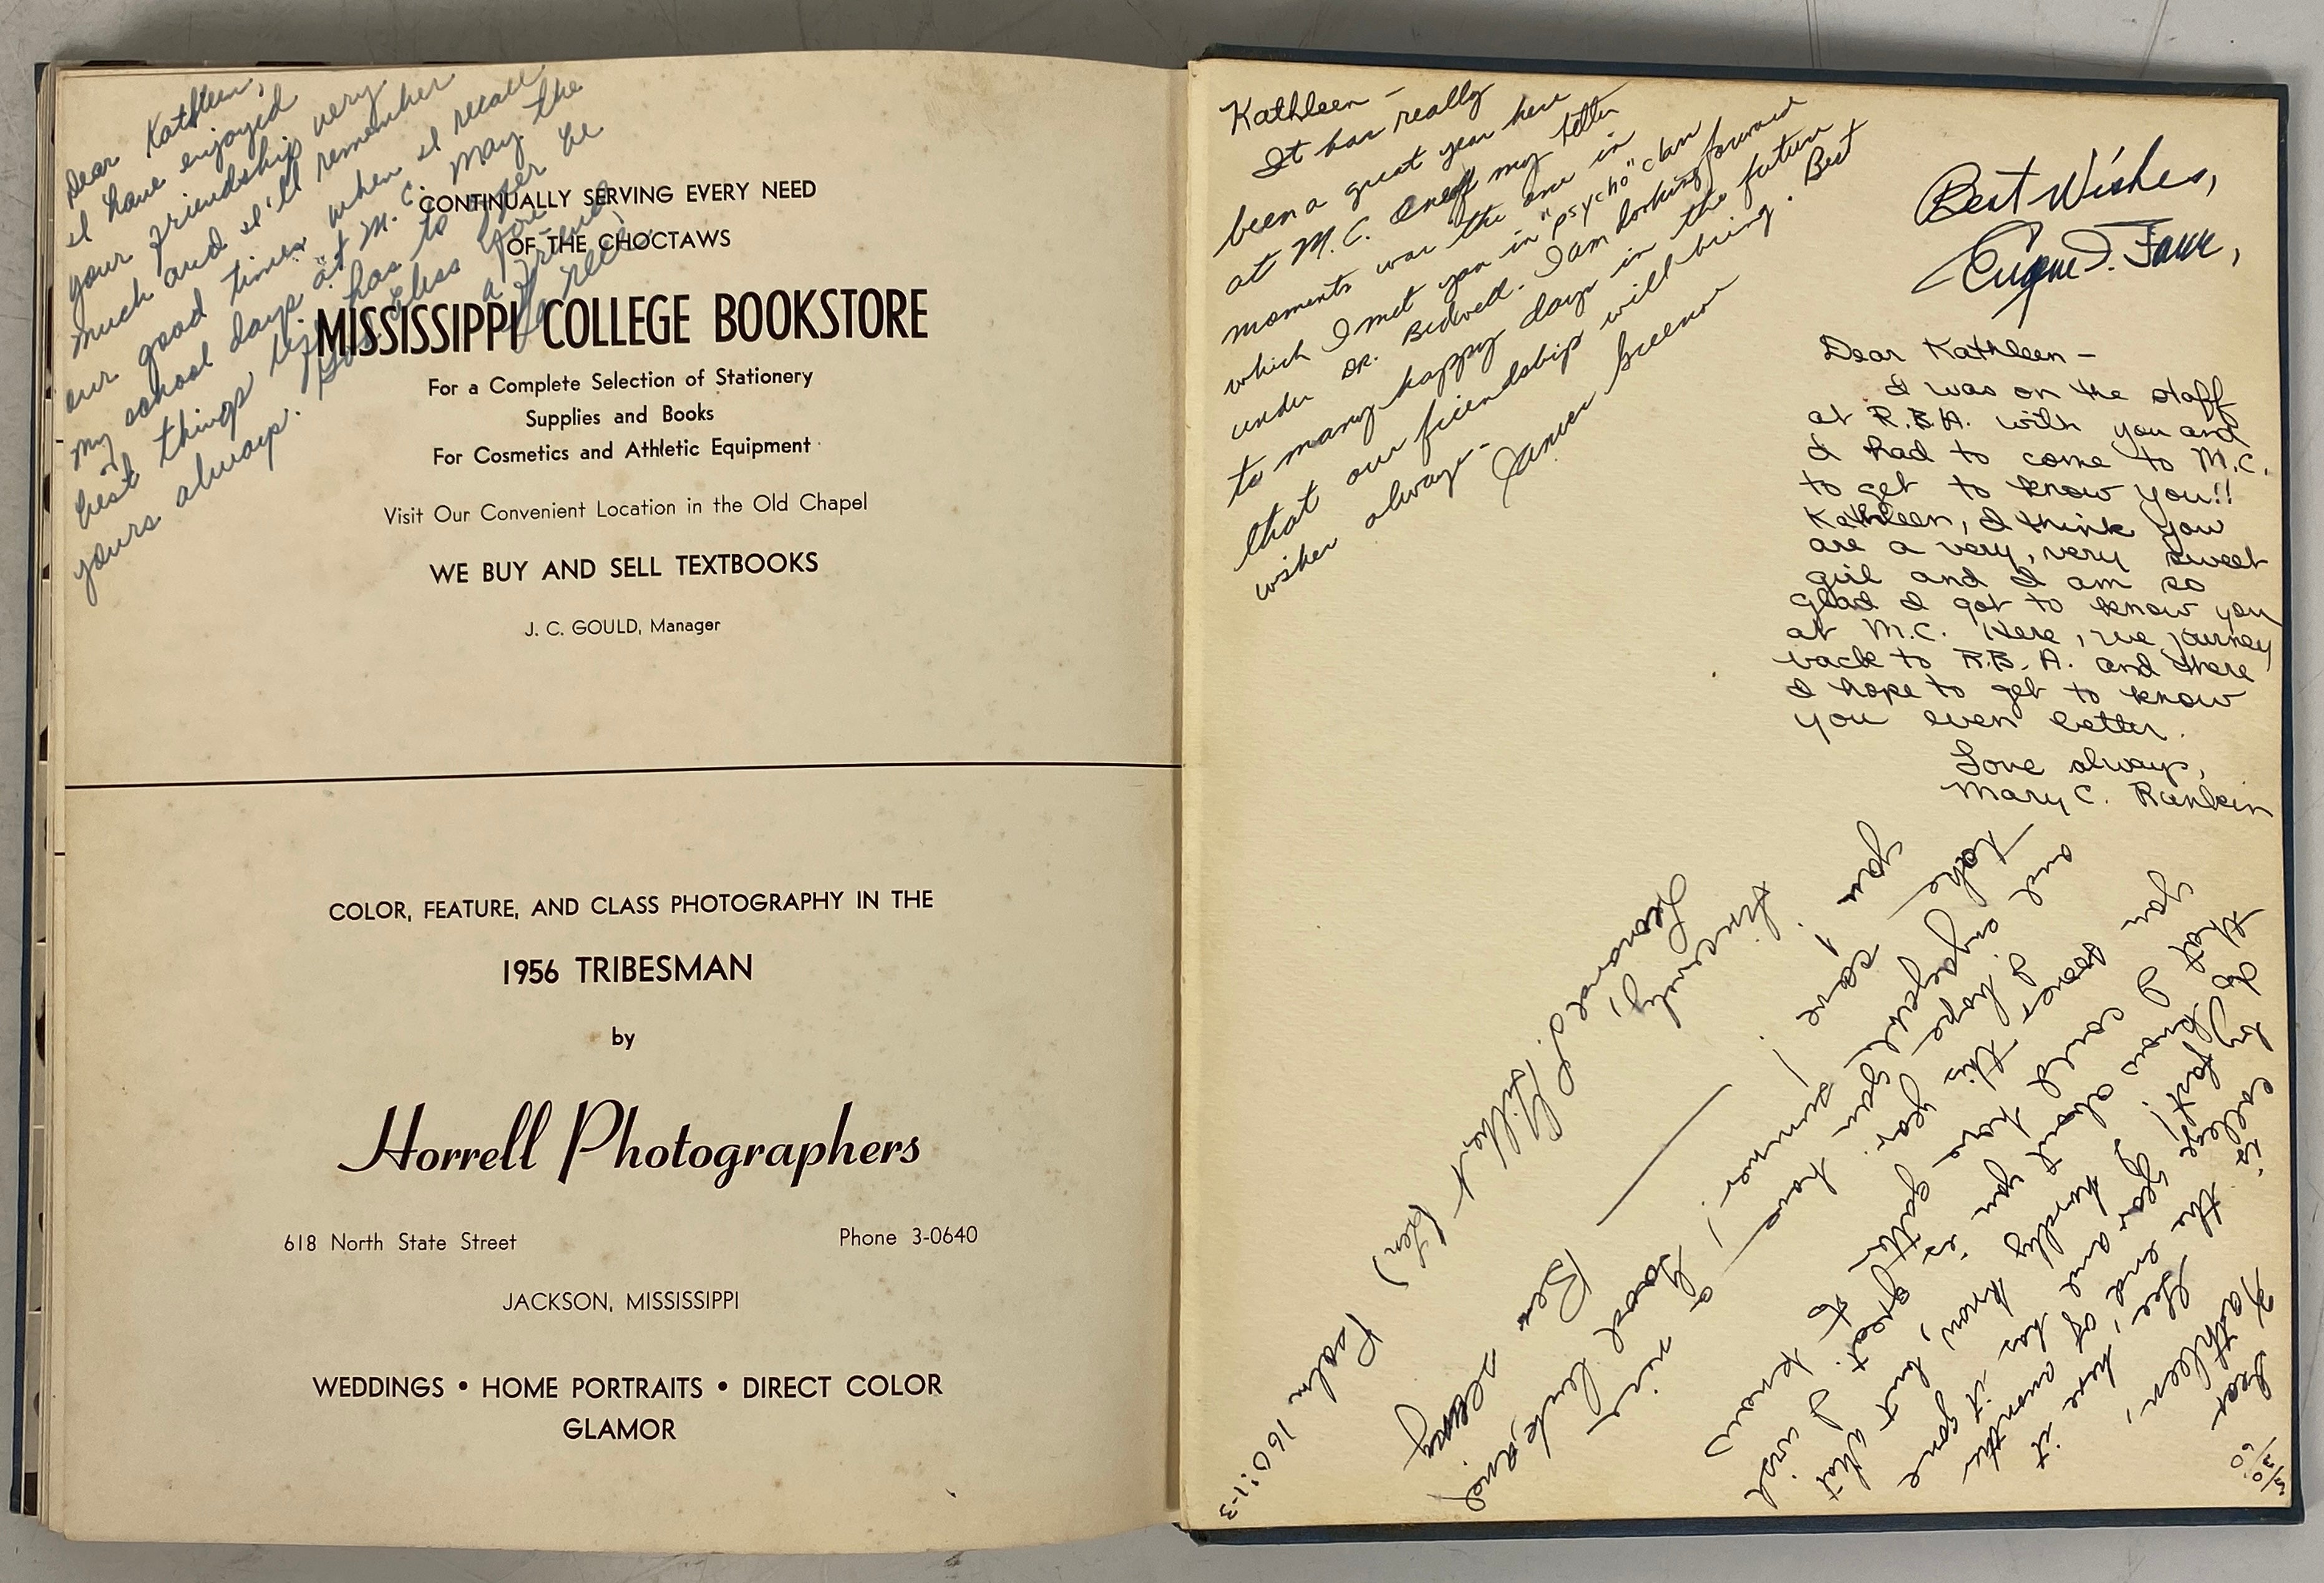 Dear Kathleen,
I have enjoyed
your friendship very
much and I'll remember
our good times when I recall
my school days at M. C. May the
best things life has to offer be
yours always. God bless you
a friend
CONTINUALLY SERVING EVERY NEED
OF THE CHOCTAWS
MISSISSIPPI COLLEGE BOOKSTORE
For a Complete Selection of Stationery
Supplies and Books
For Cosmetics and Athletic Equipment
Visit Our Convenient Location in the Old Chapel
WE BUY AND SELL TEXTBOOKS
J. C. GOULD, Manager
COLOR, FEATURE, AND CLASS PHOTOGRAPHY IN THE
1956 TRIBESMAN
by
Horrell Photographers
618 North State Street Phone 3-0640
JACKSON, MISSISSIPPI
WEDDINGS • HOME PORTRAITS • DIRECT COLOR
GLAMOR
Kathleen -
It has really
been a great year here
at M.C. One of my better
moments was the one in
which I met you in "psycho" class
under Dr. Bidwell. I am looking forward
to many happy days in the future +
that our friendship will bring. Best
wishes always -
James
Best Wishes,
Eugene I. Farr,
Dear Kathleen -
I was on the staff
at R.B.A. with you and
I had to come to M.C.
to get to know you!!
Kathleen, I think you
are a very, very sweet
girl and I am so
glad I got to know you
at M.C. Here, we journey
back to R.B.A. and there
I hope to get to know
you even better.
Love always,
Mary C. Rankin
5/30/60
Dear
Kathleen,
Gee, here it
is the end of another
year and has it gone
by fast! I hardly know
you, but what
I know about you is great. I wish
that I could have gotten to know
you sooner
and I hope this year
enjoyed
you have a nice
summer! Good luck and
Take care!
Ben
Sincerely,
Leonard L. Gilbert (Len)
Psalm 16:11